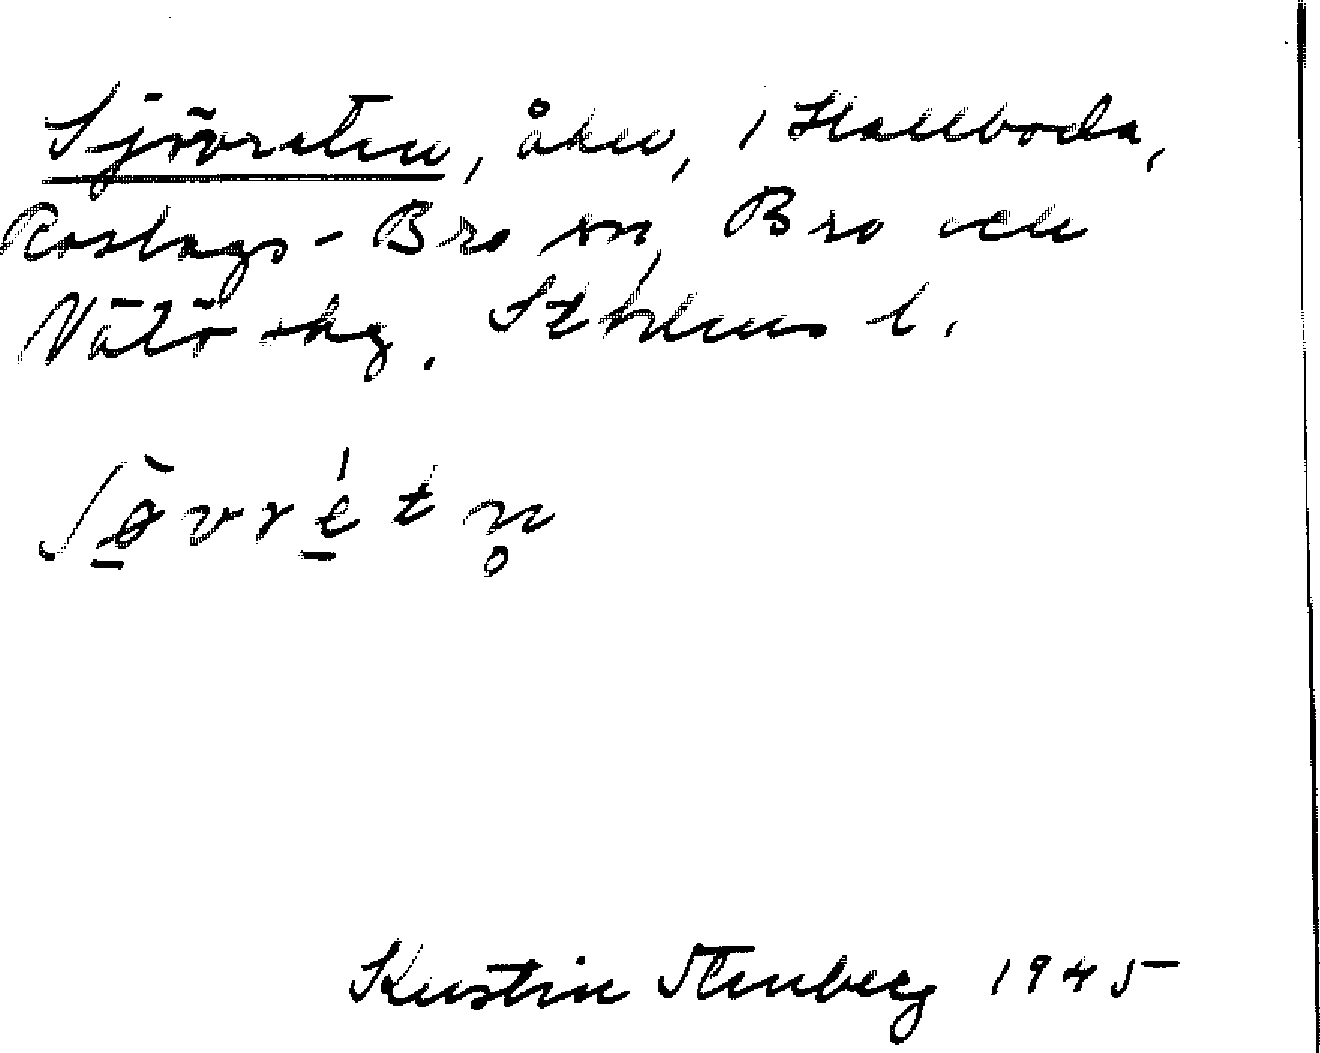 Sjövreten, åker, i Hallboda,
Roslags-Bro sn, Bro och
Vätö skg. Sthlms l.
Kerstin Stenberg 1945